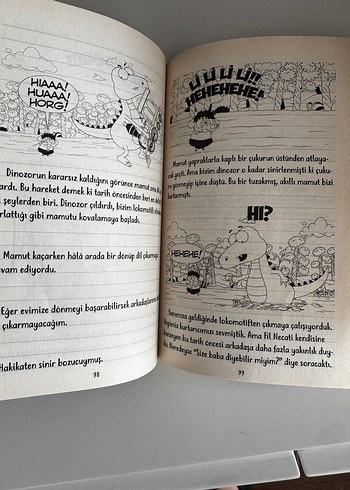 HIAAA!
HUAAA!
HORG!
Dinozorun kararsız kaldığını görünce mamut ona di
ardı. Bu hareket demek ki tarih öncesinden beri en
şeylerden biri. Dinozor çıldırdı, bizim lokomotifi
rlattığı gibi mamutu kovalamaya başladı.
Mamut kaçarken hâlâ arada bir dönüp dil çıkarmaya
evam ediyordu.
Eğer evimize dönmeyi başarabilirsek arkadaşlarıma
çıkarmayacağım.
Hakikaten sinir bozucuymuş.
98
Lİ Lİ Lİ Lİ!!
HEHEHEHE!
Mamut yapraklarla kaplı bir çukurun üstünden atlaya-
rak geçti. Ama bizim dinozor o kadar sinirlenmişti ki çuku-
ru görmeyip içine düştü. Bu bir tuzakmış, akıllı mamut bizi
kurtarmıştı.
HI?
HEHEHE!
geldiğinde lokomotiften çıkmaya çalışıyorduk.
kurtarıcımızı sevmiştik. Ama Fil Necati kendisine
benzeyen bu tarih öncesi arkadaşa daha fazla yakınlık duy-
Neredeyse "Size baba diyebilir miyim?" diye soracaktı.
99